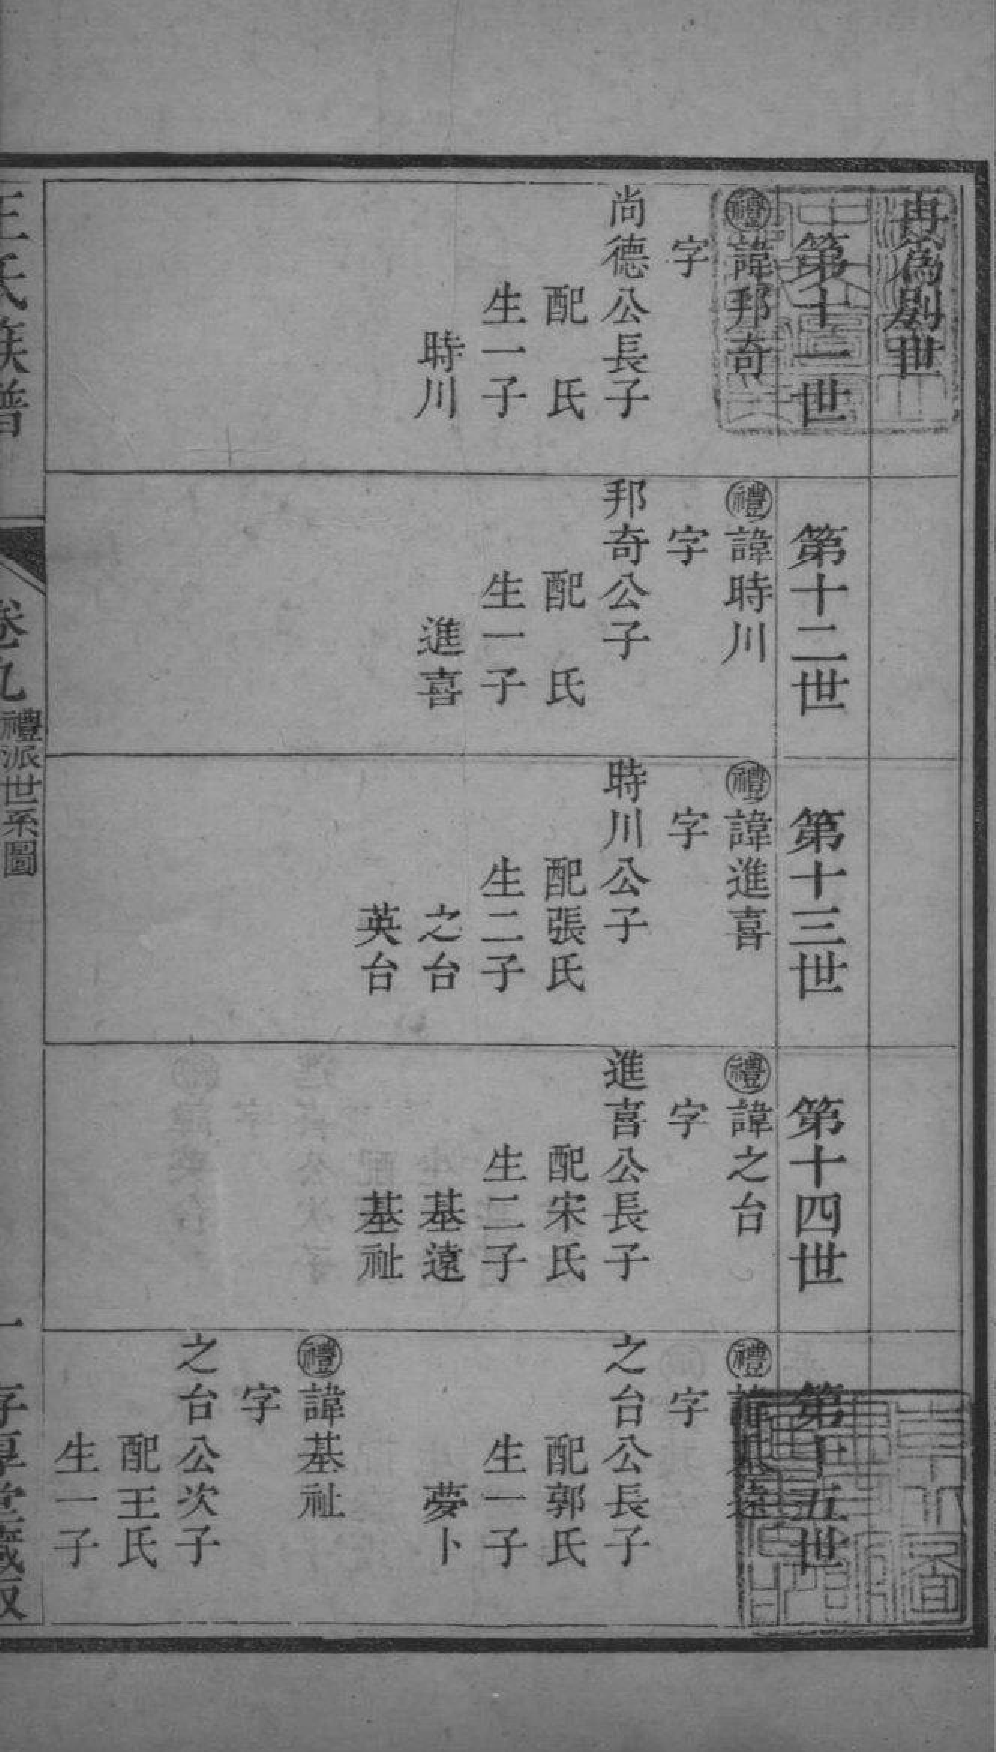 再爲別世
第十一世
禮諱邦奇
字
尚德公長子
配 氏
生一子
時川
第十二世
禮諱時川
字
邦奇公子
配 氏
生一子
進喜
第十三世
禮諱進喜
字
時川公子
配張氏
生二子
之台
英台
第十四世
禮諱之台
字
進喜公長子
配宋氏
生二子
基遠
基祉
第十五世
禮諱基遠
字
之台公長子
配郭氏
生一子
夢卜
禮諱基祉
字
之台公次子
配王氏
生一子
王氏族譜
卷九
禮派世系圖
一
存厚堂藏版